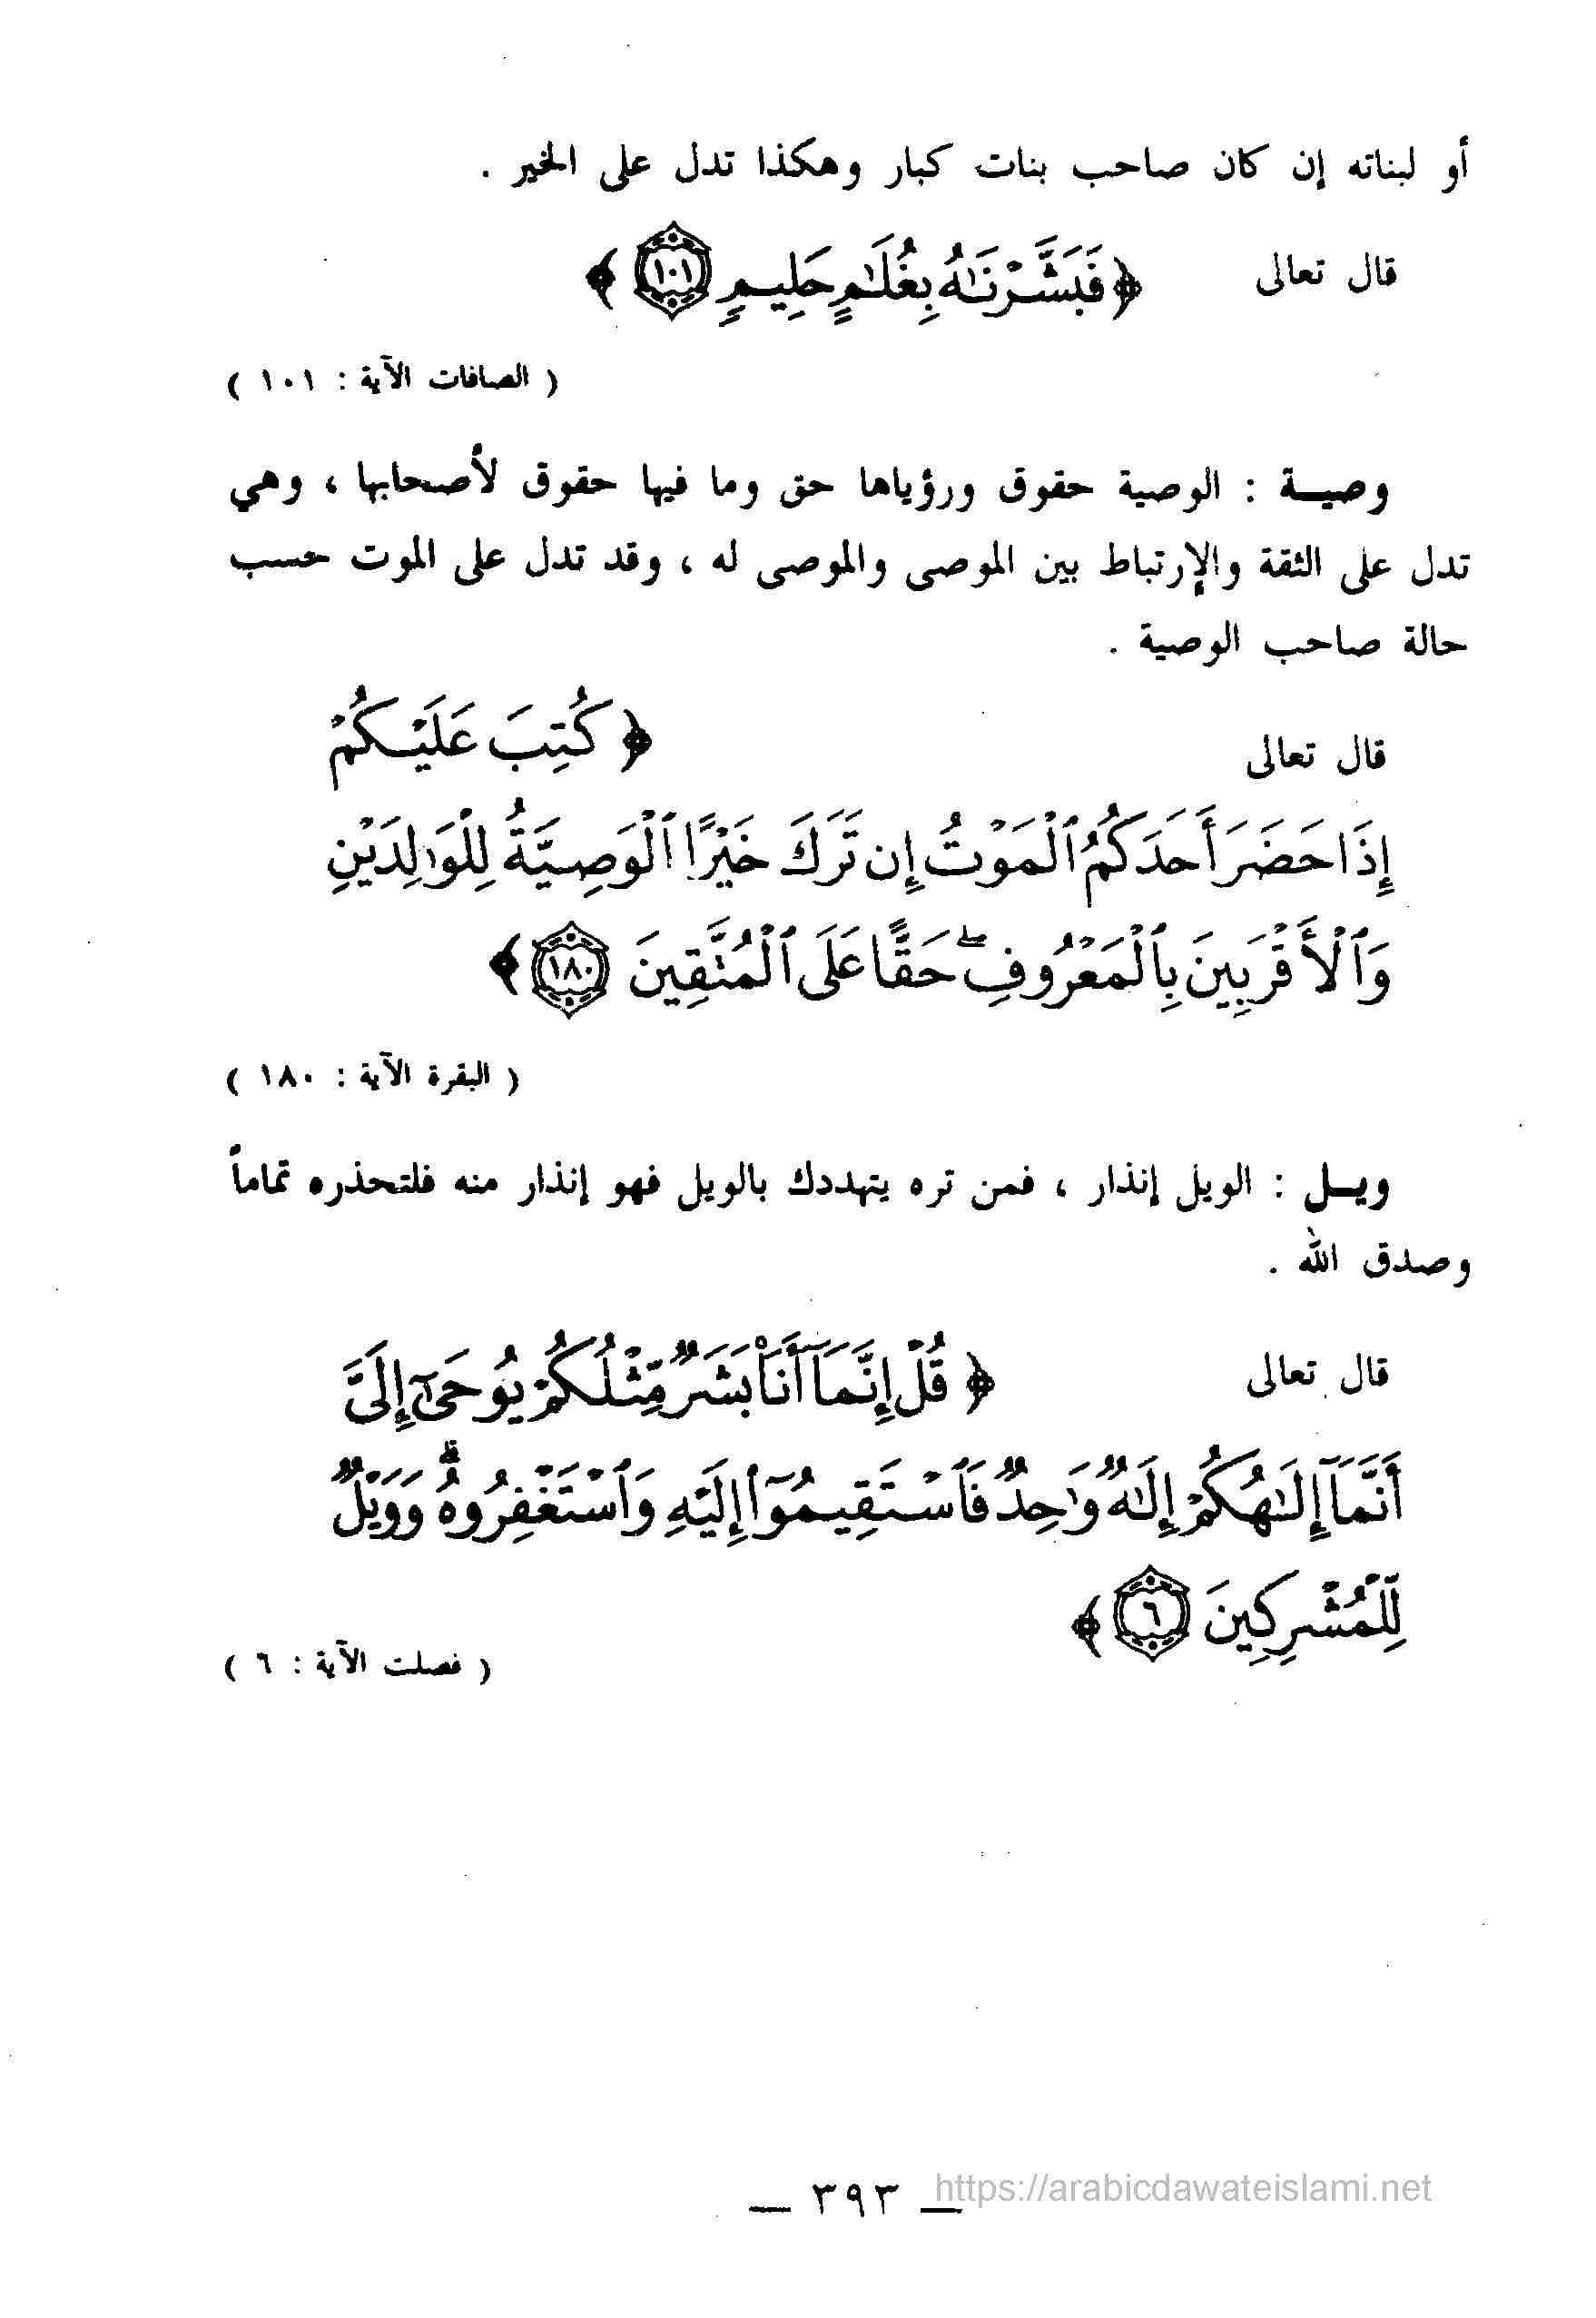 أو لبناته إن كان صاحب بنات كبار وهكذا تدل على الخير .
قال تعالى ﴿ فَبَشَّرْنَٰهُ بِغُلَٰمٍ حَلِيمٍ ١٠١ ﴾
( الصافات الآية : ١٠١ )
وصيـة : الوصية حقوق ورؤياها حق وما فيها حقوق لأصحابها ، وهي
تدل على الثقة والإرتباط بين الموصى والموصى له ، وقد تدل على الموت حسب
حالة صاحب الوصية .
قال تعالى ﴿ كُتِبَ عَلَيْكُمْ
إِذَا حَضَرَ أَحَدَكُمُ ٱلْمَوْتُ إِن تَرَكَ خَيْرًا ٱلْوَصِيَّةُ لِلْوَٰلِدَيْنِ
وَٱلْأَقْرَبِينَ بِٱلْمَعْرُوفِ ۖ حَقًّا عَلَى ٱلْمُتَّقِينَ ١٨٠ ﴾
( البقرة الآية : ١٨٠ )
ويـل : الويل إنذار ، فمن تره يتهددك بالويل فهو إنذار منه فلتحذره تماماً
وصدق الله .
قال تعالى ﴿ قُلْ إِنَّمَآ أَنَا۠ بَشَرٌ مِّثْلُكُمْ يُوحَىٰٓ إِلَىَّ
أَنَّمَآ إِلَٰهُكُمْ إِلَٰهٌ وَٰحِدٌ فَٱسْتَقِيمُوٓا۟ إِلَيْهِ وَٱسْتَغْفِرُوهُ ۗ وَوَيْلٌ
لِّلْمُشْرِكِينَ ٦ ﴾
( فصلت الآية : ٦ )
— ٣٩٣ —
https://arabicdawateislami.net